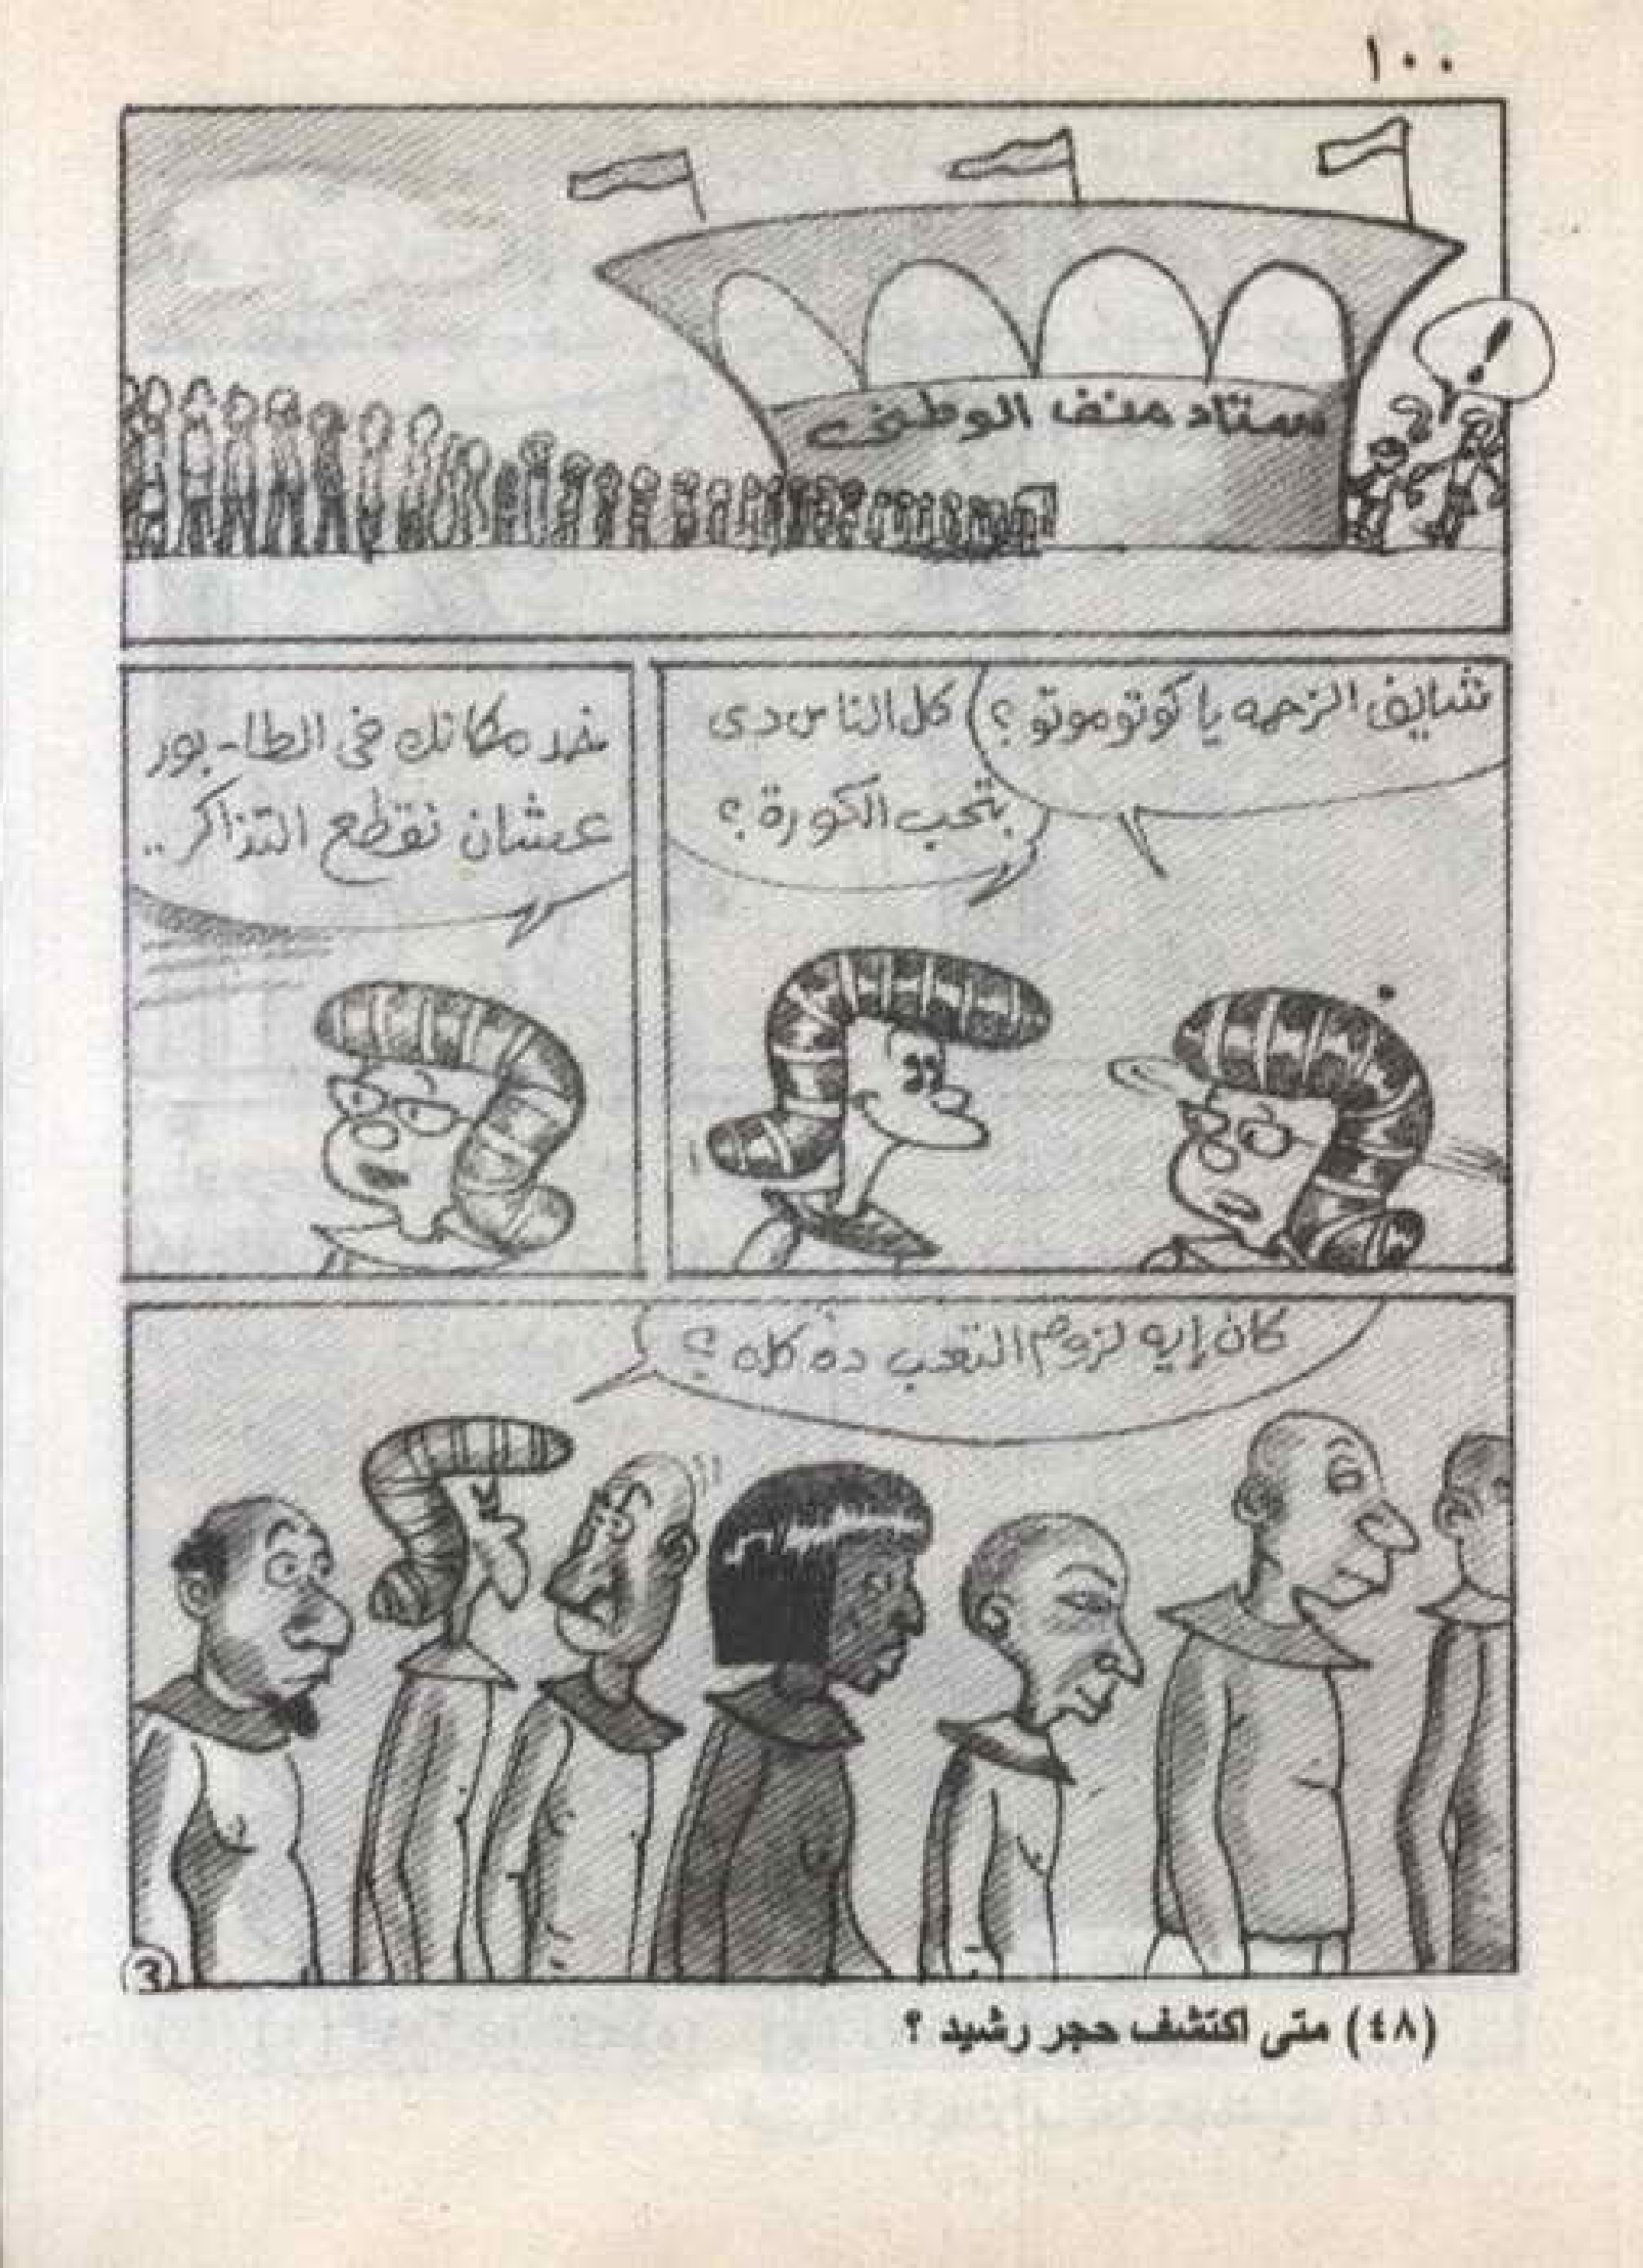 ١٠٠
!
ستاد منف الوطنى
شايف الزحمه يا كوتوموتو ؟
كل الناس دى
بتحب الكورة ؟
خد مكانك فى الطابور
عشان نقطع التذاكر ..
كان إيه لزوم التعب ده كله ؟
3
(٤٨) متى اكتشف حجر رشيد ؟